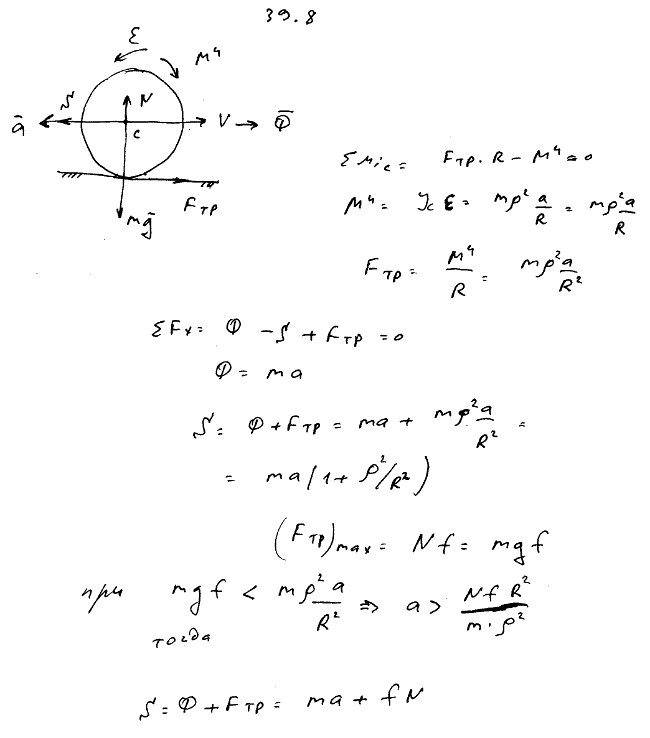 39.8
ε
Mᶤ
S N
ā c V Φ̄
Fтр
mḡ
Σ Mic = Fтр · R − Mᶤ = 0
Mᶤ = Jc ε = mρ² a/R = mρ²a/R
Fтр = Mᶤ/R = mρ²a/R²
ΣFx = Φ − S + Fтр = 0
Φ = ma
S = Φ + Fтр = ma + mρ²a/R² =
= ma(1 + ρ²/R²)
(Fтр)max = Nf = mgf
при mgf < mρ²a/R² ⇒ a > NfR²/m·ρ²
тогда
S = Φ + Fтр = ma + fN